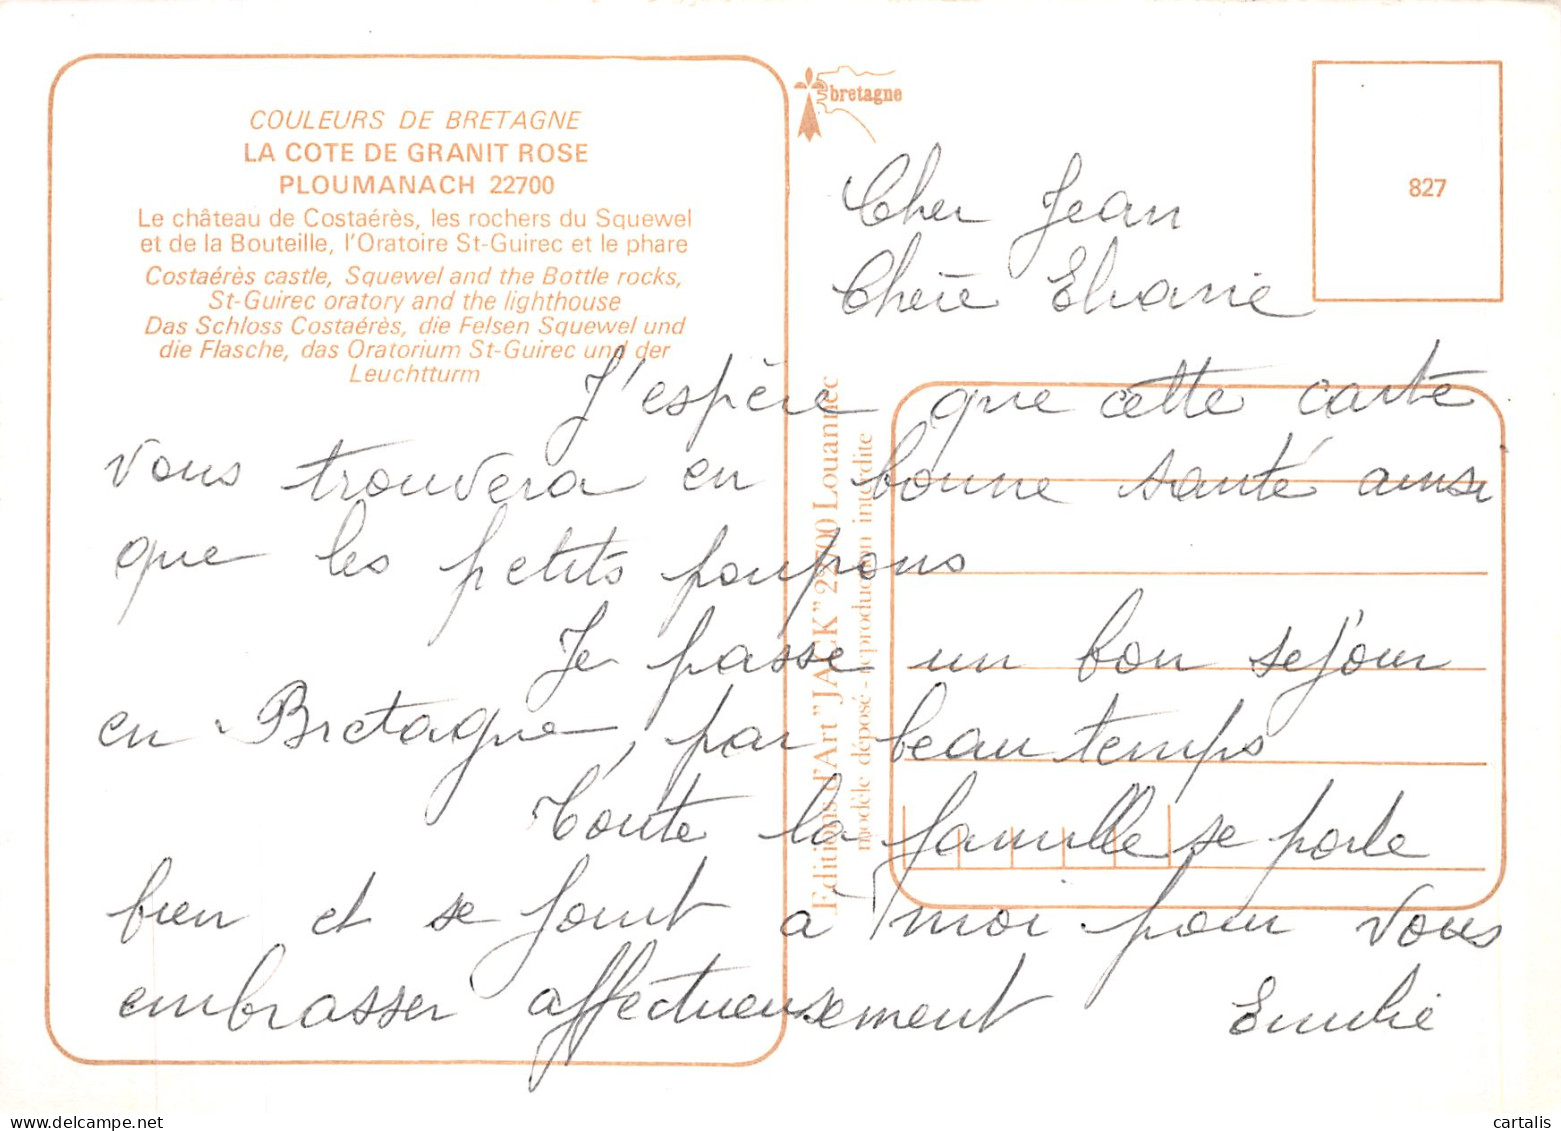 COULEURS DE BRETAGNE
LA COTE DE GRANIT ROSE
PLOUMANACH 22700
Le château de Costaérès, les rochers du Squewel
et de la Bouteille, l'Oratoire St-Guirec et le phare
Costaérès castle, Squewel and the Bottle rocks,
St-Guirec oratory and the lighthouse
Das Schloss Costaérès, die Felsen Squewel und
die Flasche, das Oratorium St-Guirec und der
Leuchtturm
bretagne
827
Editions d'Art "JACK" 22700 Louannec
modèle déposé - reproduction interdite
Cher Jean
Chère
J'espère que cette carte
vous trouvera en bonne santé ainsi
que les petits poupons
Je passe un bon séjour
en Bretagne, par beau temps
Toute la famille se porte
bien et se joint à moi pour vous
embrasser affectueusement Emilie
cartalis